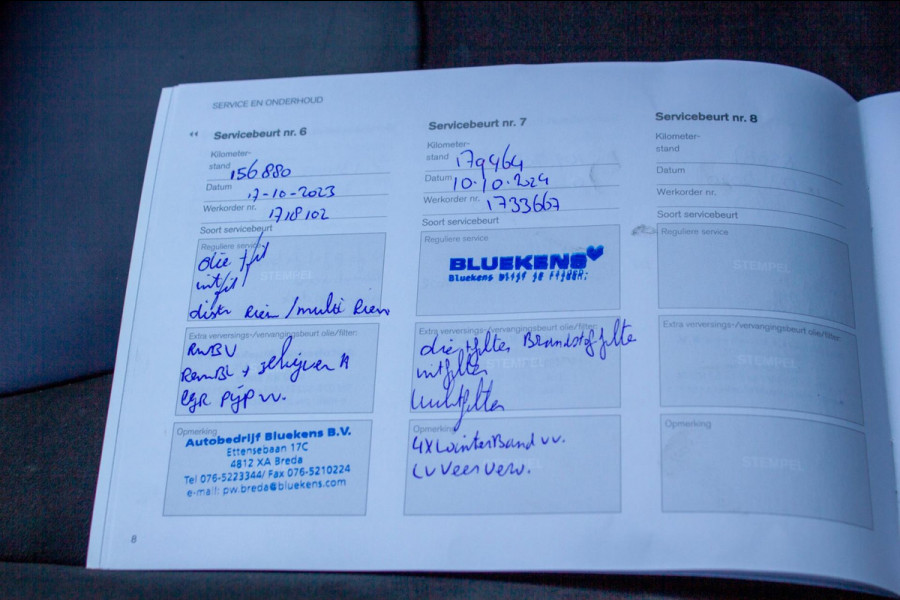 SERVICE EN ONDERHOUD
“ Servicebeurt nr. 6
Kilometer-
stand 156880
Datum 17-10-2023
Werkorder nr. 1718102
Soort servicebeurt
Reguliere service
olie + fil
intfil
distr Riem / multi Riem
Extra verversings-/vervangingsbeurt olie/filter:
RWBV
RemBL + schijven A
EGR pijp vv.
Opmerking
Autobedrijf Bluekens B.V.
Ettensebaan 17C
4812 XA Breda
Tel 076-5223344/ Fax 076-5210224
e-mail: pw.breda@bluekens.com
8
Servicebeurt nr. 7
Kilometer-
stand 179464
Datum 10.10.2024
Werkorder nr. 1733667
Soort servicebeurt
Reguliere service
BLUEKENS
Bluekens blijf je rijden.
Extra verversings-/vervangingsbeurt olie/filter:
olie + filter Brandstoffilter
intfilter
luchtfilter
Opmerking
4X WinterBand vv.
LV Veer verv.
Servicebeurt nr. 8
Kilometer-
stand
Datum
Werkorder nr.
Soort servicebeurt
Reguliere service
STEMPEL
Extra verversings-/vervangingsbeurt olie/filter:
STEMPEL
Opmerking
STEMPEL